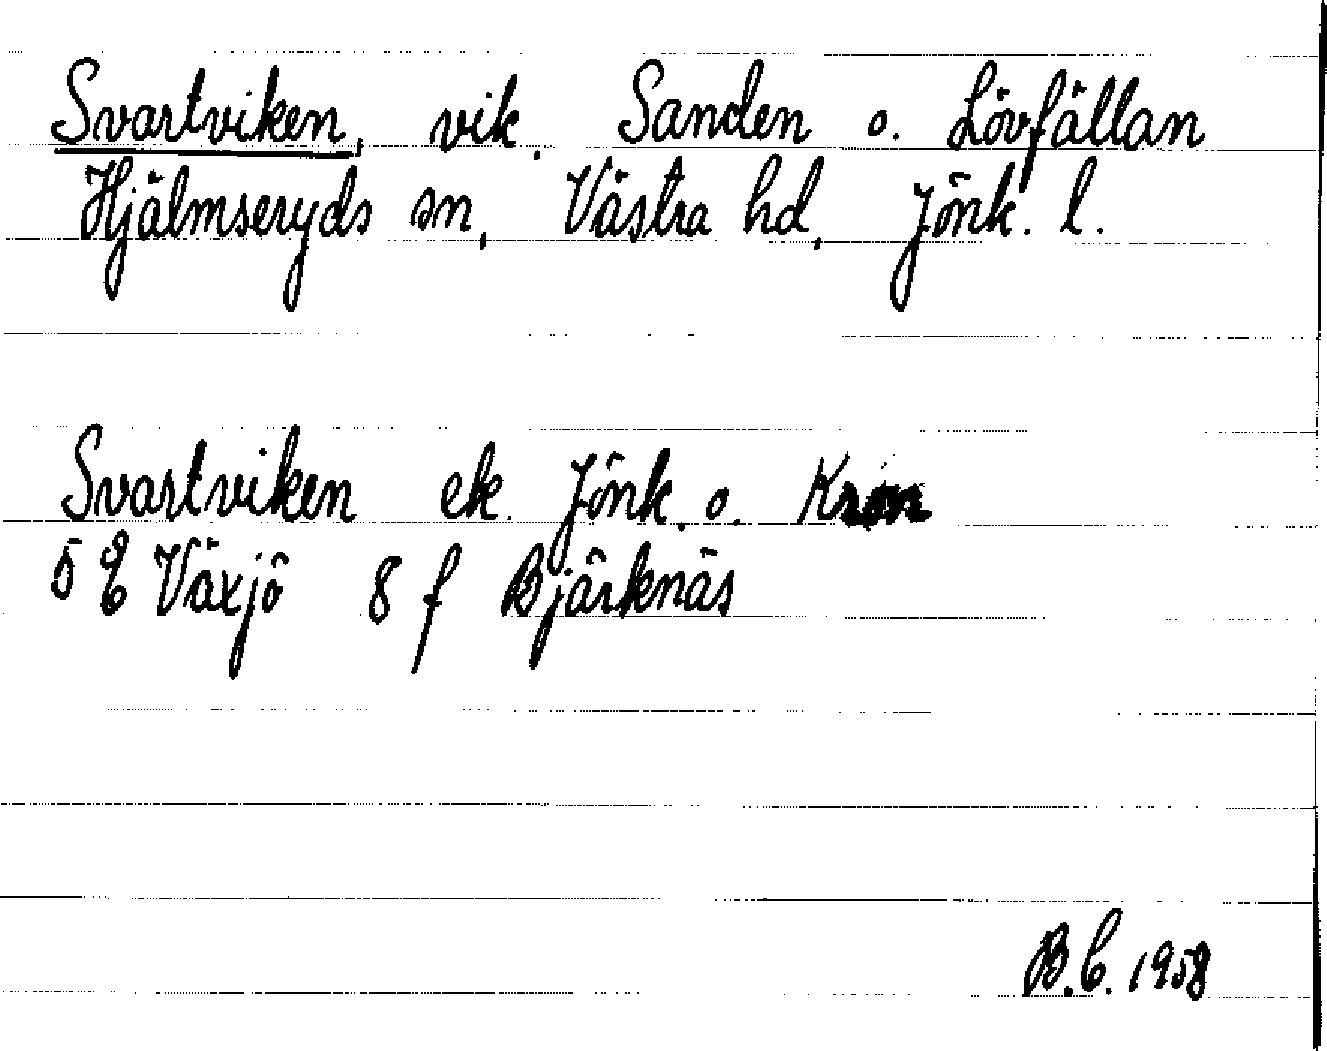 Svartviken, vik. Sanden o. Lövfällan
Hjälmseryds sn, Västra hd, Jönk. l.
Svartviken ek. Jönk. o. Kron
5 E Växjö 8 f Bjärknäs
B.C. 1958